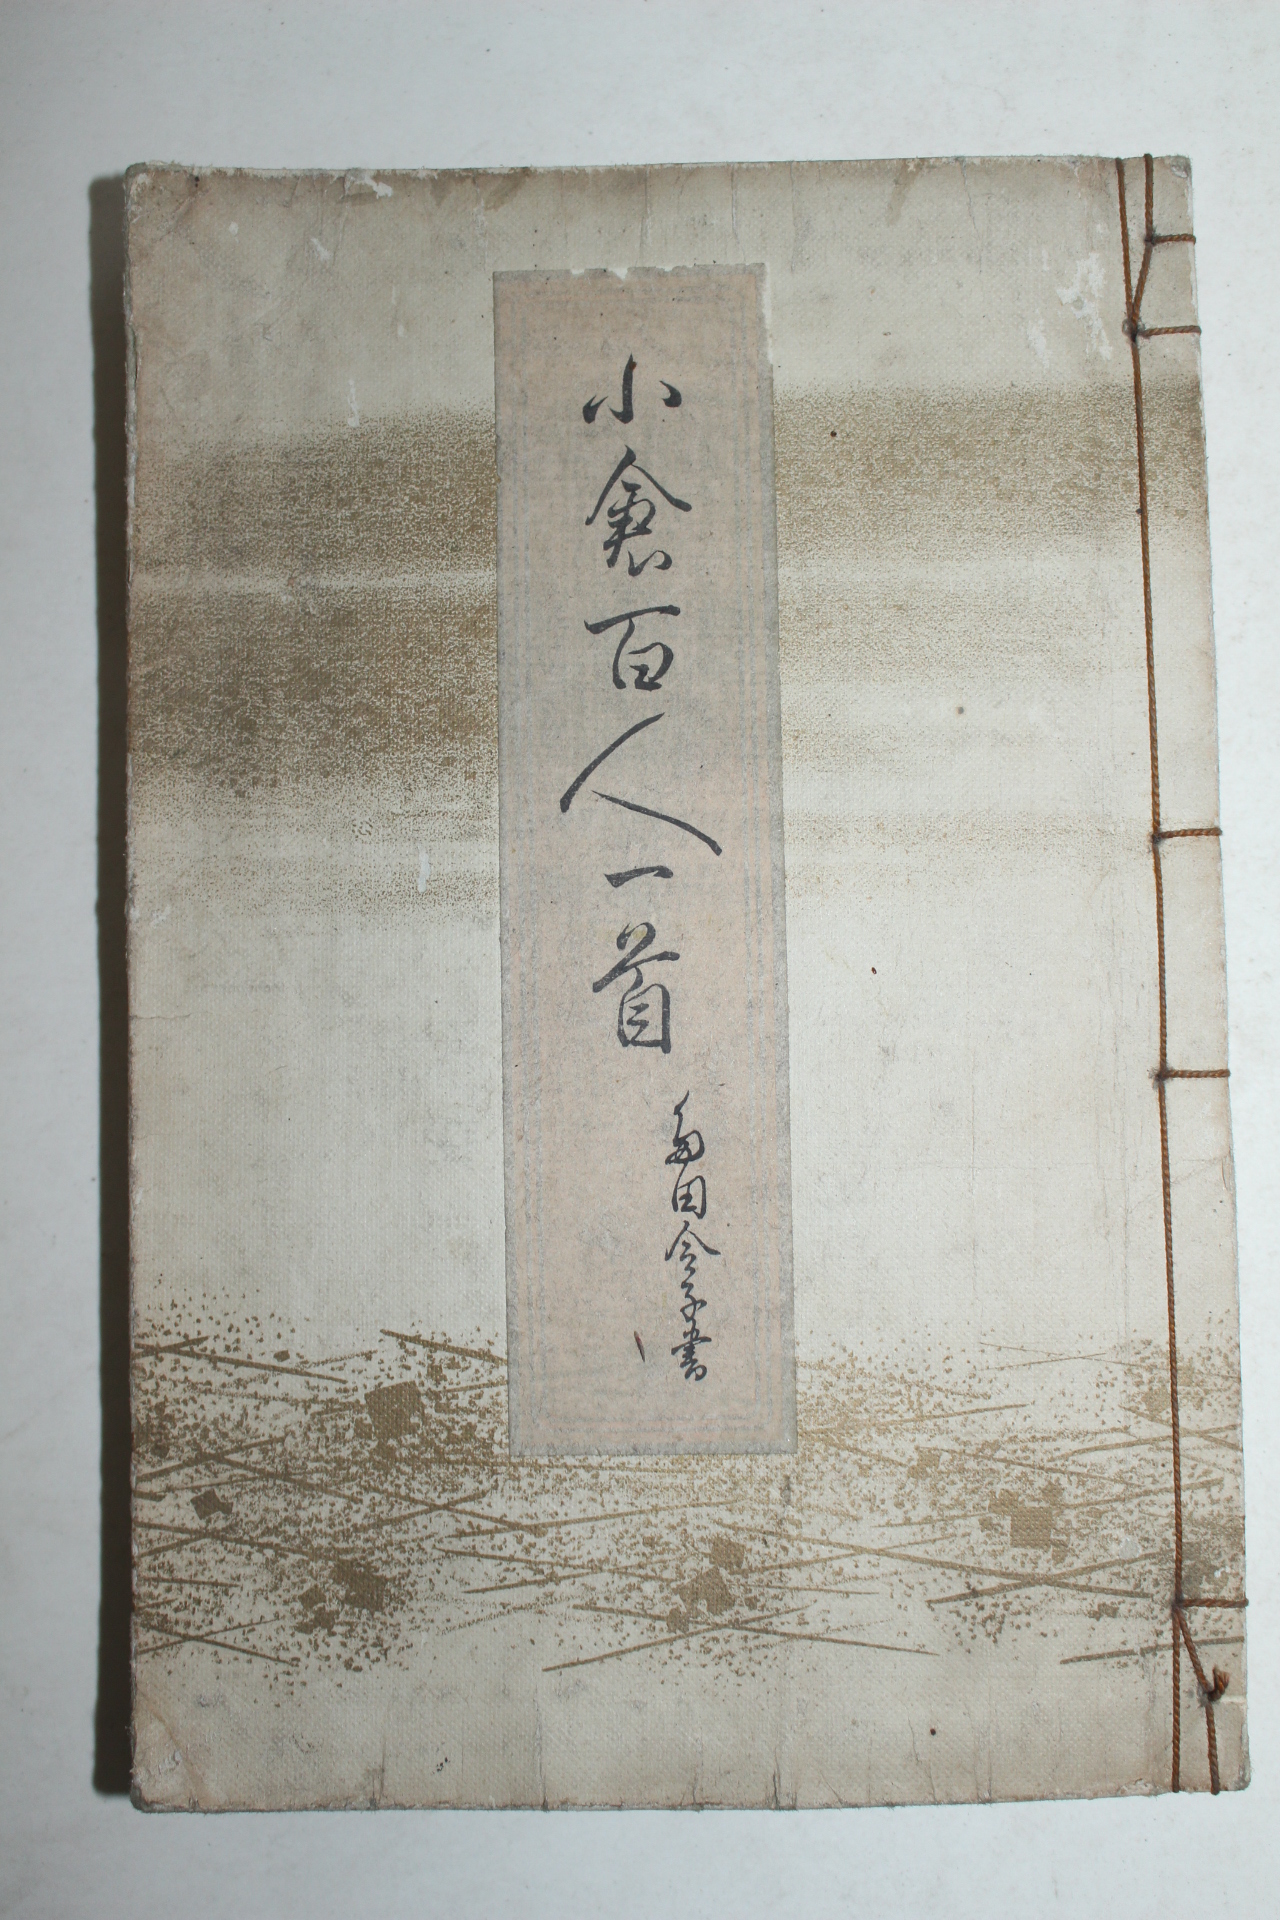 小倉百人一首
多田令子書